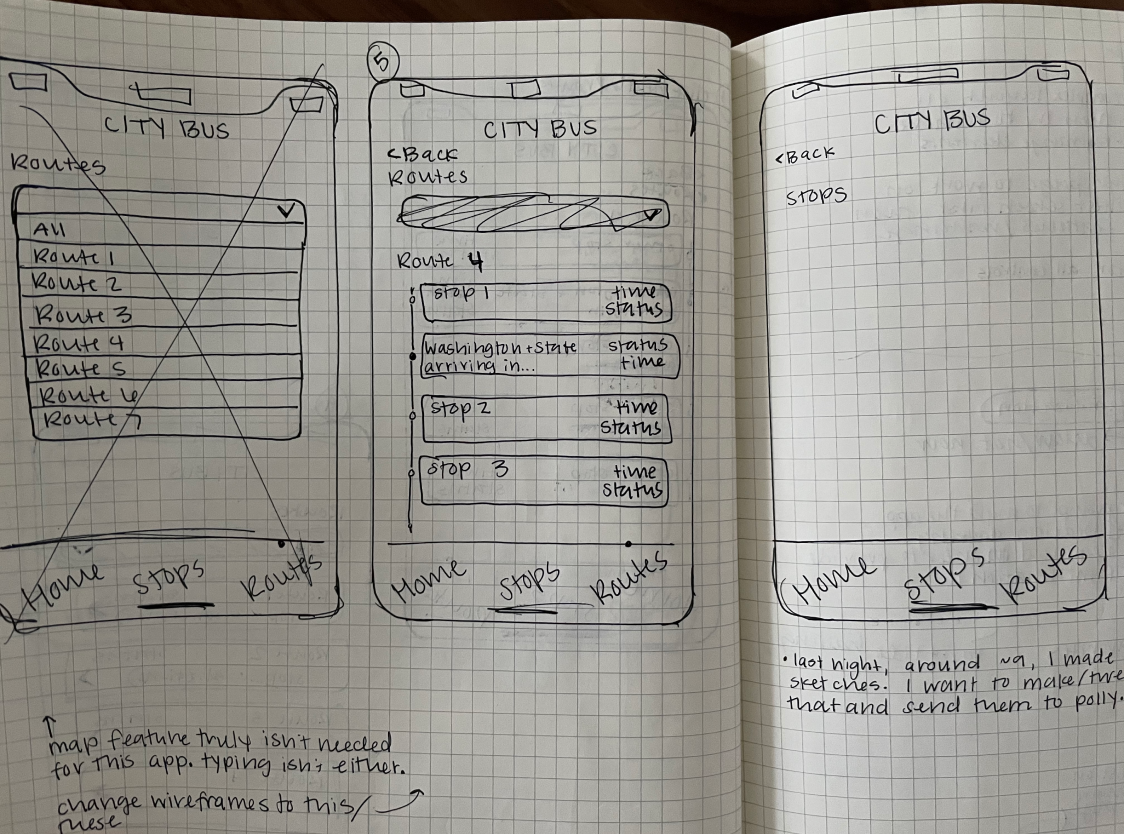 CITY BUS
Routes
All
Route 1
Route 2
Route 3
Route 4
Route 5
Route 6
Route 7
Home Stops Routes
↑
map feature truly isn't needed
for this app. typing isn't either.
change wireframes to this/
these
5
CITY BUS
<Back
Routes
Route 4
stop 1 time
status
Washington + State status
arriving in... time
stop 2 time
status
stop 3 time
status
Home Stops Routes
CITY BUS
<Back
stops
Home Stops Routes
• last night, around ~9, I made
sketches. I want to make/twe
that and send them to polly.